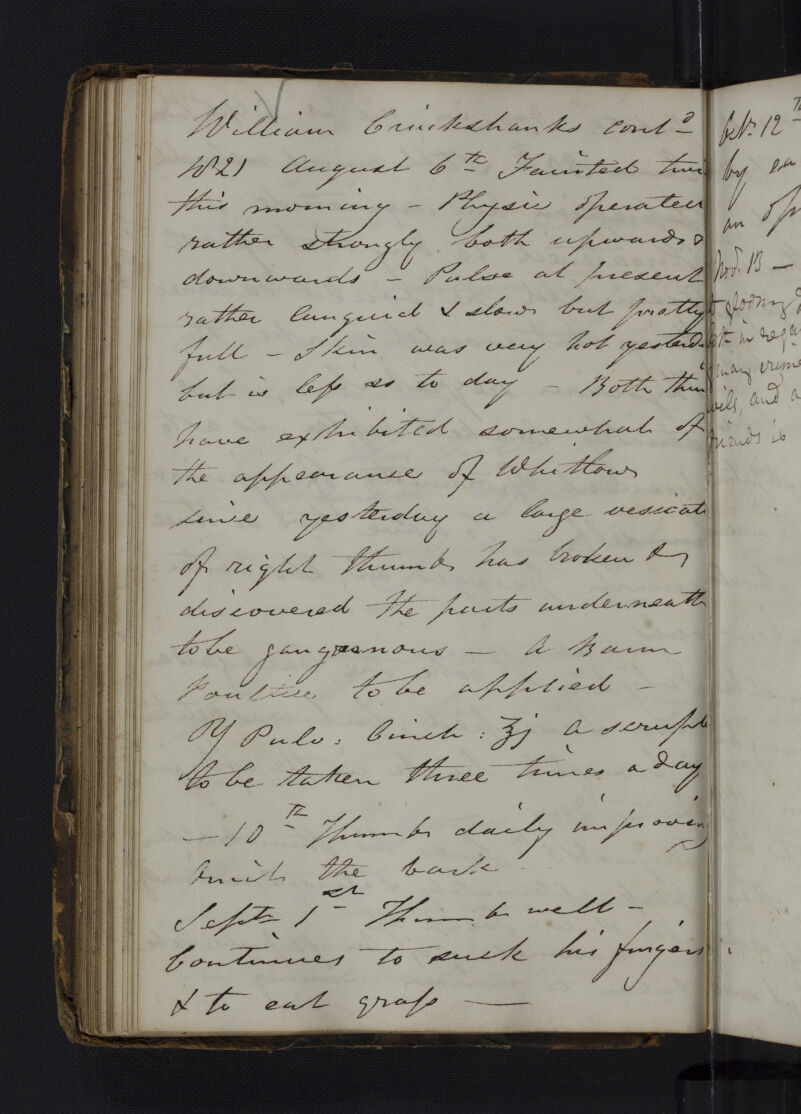 William Cruickshanks cont.d
No 21 August 6th Fainted twi
this morning - Physic operated
rather strongly both upwards &
downwards - Pulse at present
rather languid & slow but pretty
full - Skin was very hot yesterd
but is less so to day - Both thum
have exhibited somewhat of
the appearance of Whitlow
since yesterday a large vesicat
of right thumb has broken &
discovered the parts underneath
to be gangrenous - A Barm
Poultice to be applied -
℞ Pulv: Cinch: ℥j A scruple
to be taken three times a day
- 10th Thumb daily improving
Omit the bark -
Septr 1st Thumb well -
Continues to suck his fingers
& to eat grass -
Octr 12th
by
an op
Novr 13 -
gloomy
in rega
many crime
and a
friends is